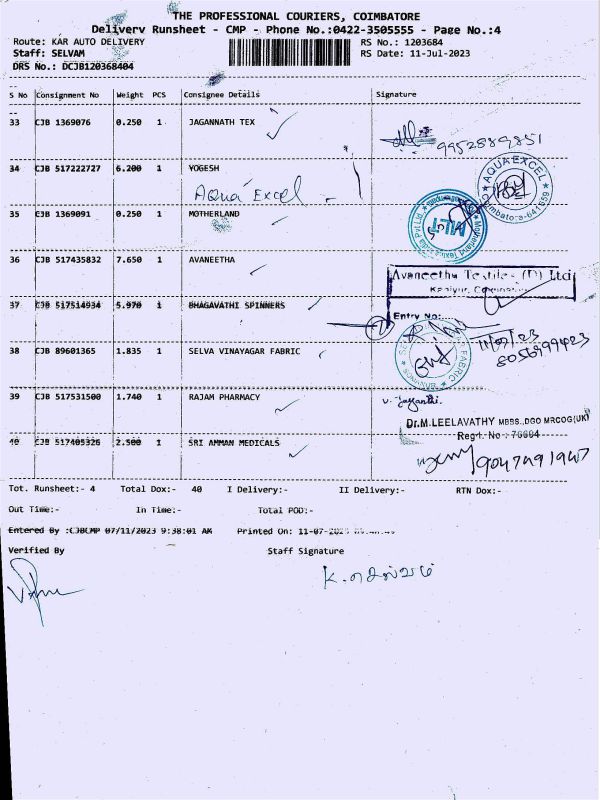 THE PROFESSIONAL COURIERS, COIMBATORE
Delivery Runsheet - CMP - Phone No.:0422-3505555 - Page No.:4
Route: KAR AUTO DELIVERY
RS No.: 1203684
Staff: SELVAM
RS Date: 11-Jul-2023
DRS No.: DCJB120368404
S No Consignment No Weight PCS Consignee Details Signature
33 CJB 1369076 0.250 1 JAGANNATH TEX
9952889851
34 CJB 517222727 6.200 1 YOGESH
Aqua Excel
AQUA EXCEL
Coimbatore-641 659
35 CJB 1369091 0.250 1 MOTHERLAND
MLT
36 CJB 517435832 7.650 1 AVANEETHA
Avaneetha Textiles (P) Ltd
Kaniyur,
37 CJB 517514934 5.970 1 BHAGAVATHI SPINNERS
Entry No:
38 CJB 89601365 1.835 1 SELVA VINAYAGAR FABRIC
11/07/23
8056999423
FABRIC
39 CJB 517531500 1.740 1 RAJAM PHARMACY
v. Jayanthi.
Dr.M.LEELAVATHY MBBS.,DGO MRCOG(UK)
Regd. No: 76604
40 CJB 517405326 2.500 1 SRI AMMAN MEDICALS
9047491947
Tot. Runsheet:- 4 Total Dox:- 40 I Delivery:- II Delivery:- RTN Dox:-
Out Time:- In Time:- Total POD:-
Entered By :CJBCMP 07/11/2023 9:38:01 AM Printed On: 11-07-2023
Verified By Staff Signature
K. செல்வம்